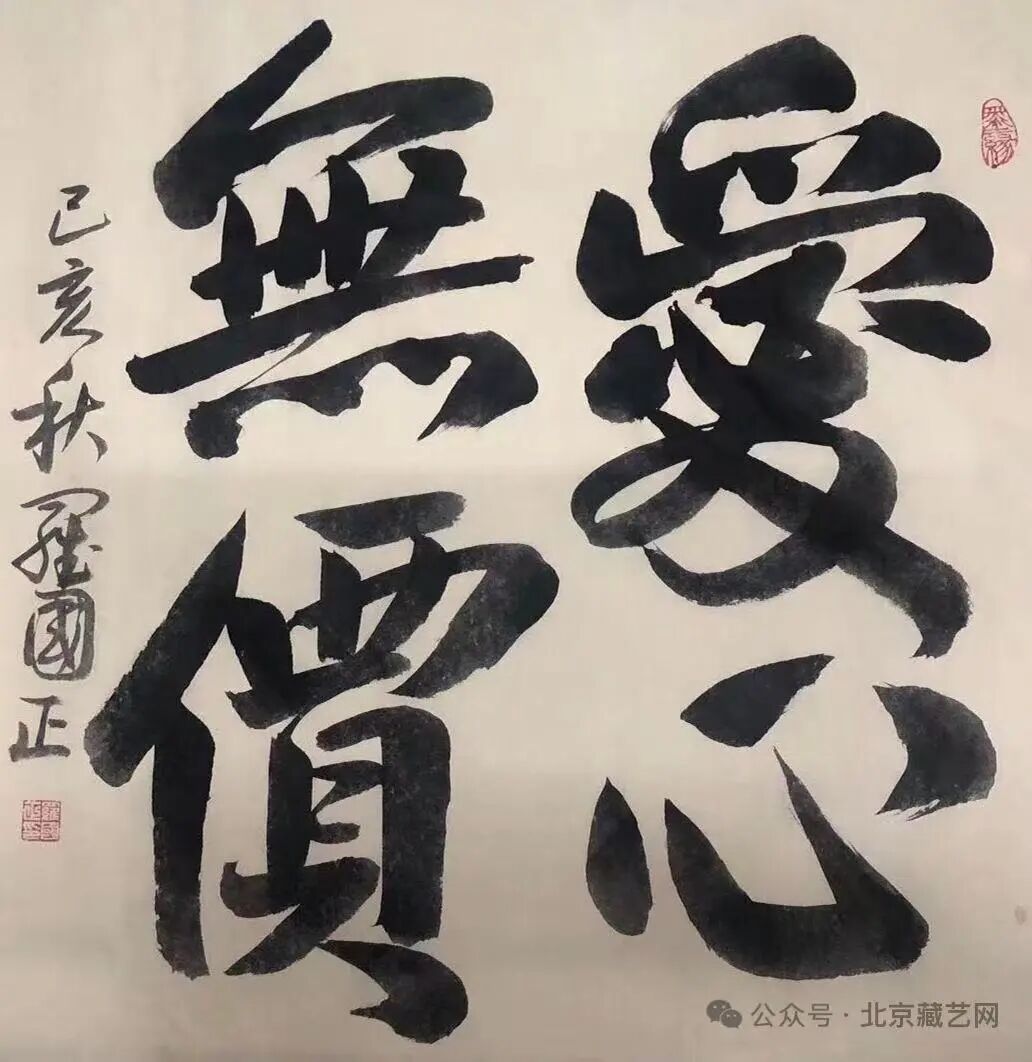 愛心
無價
己亥秋羅國正
公众号·北京藏艺网